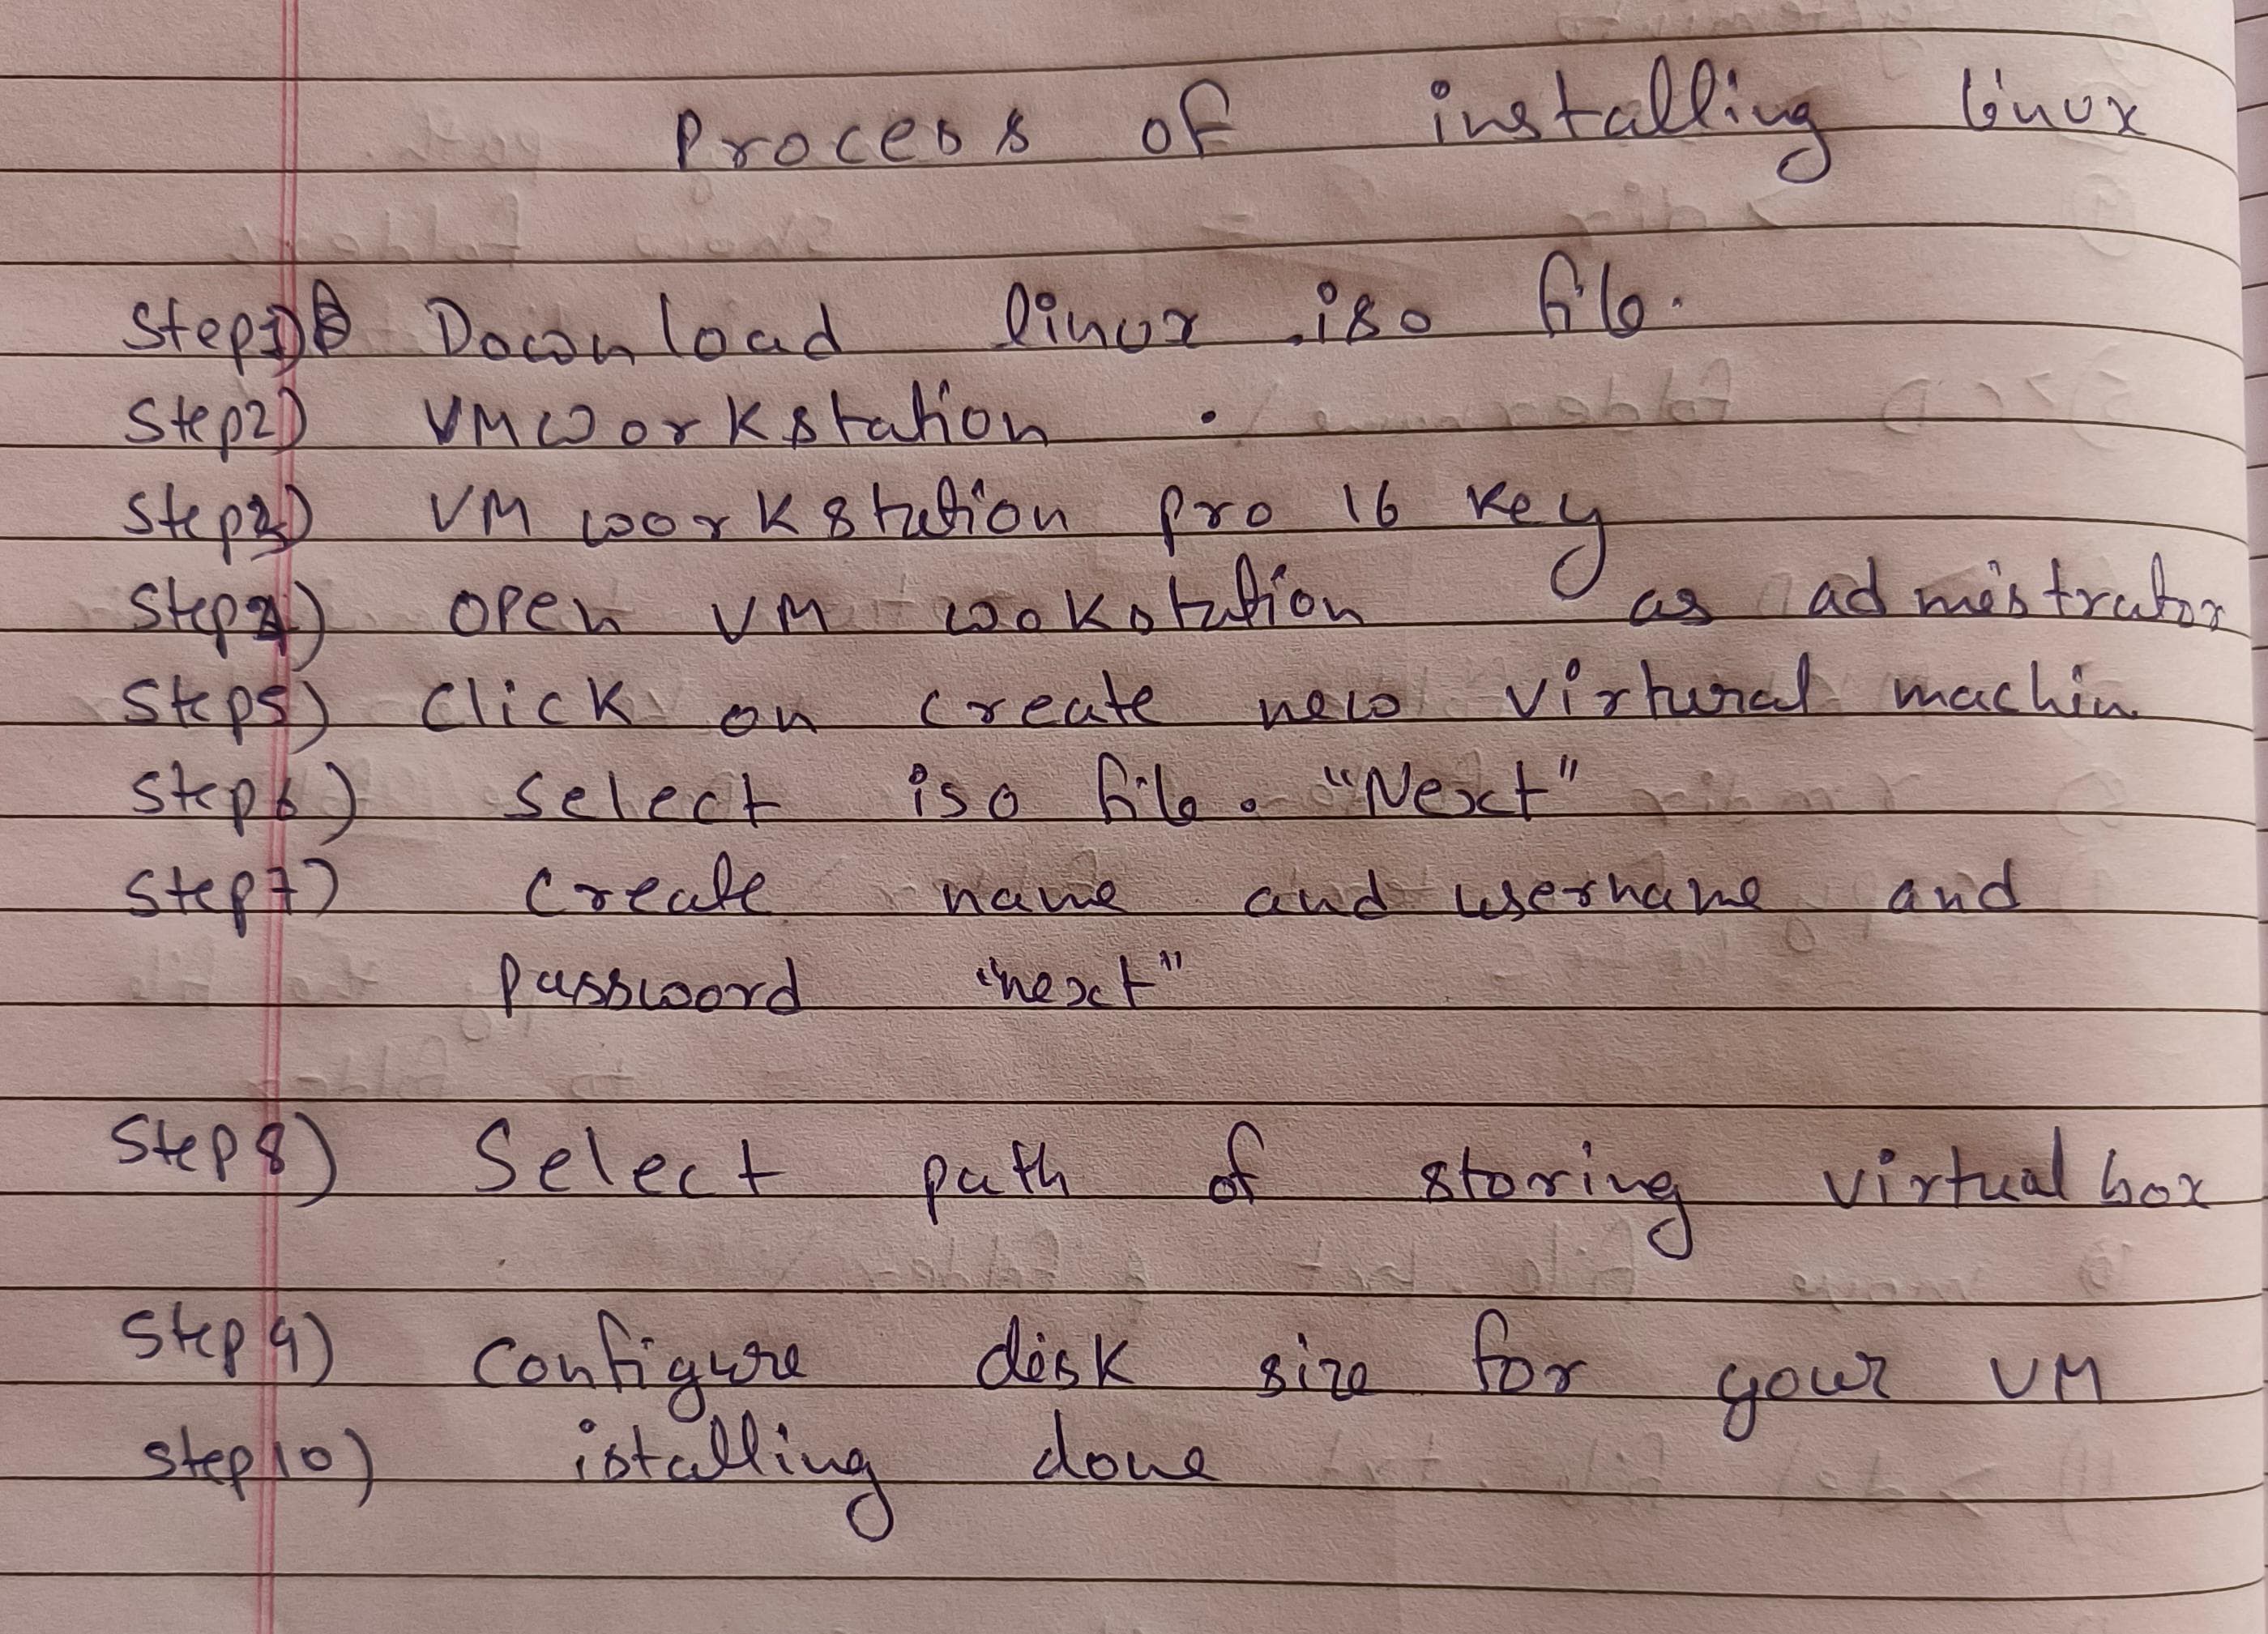 Process of installing linux
Step1) Download linux .iso file.
Step2) VMWorkstation .
Step3) VM workstation pro 16 key
Step4) open VM wokstation as admistrator
Step5) Click on create new virtural machin
Step6) Select iso file. "Next"
Step7) Create name and username and
password "next"
Step8) Select path of storing virtual box
Step9) Configure disk size for your VM
step10) istalling done